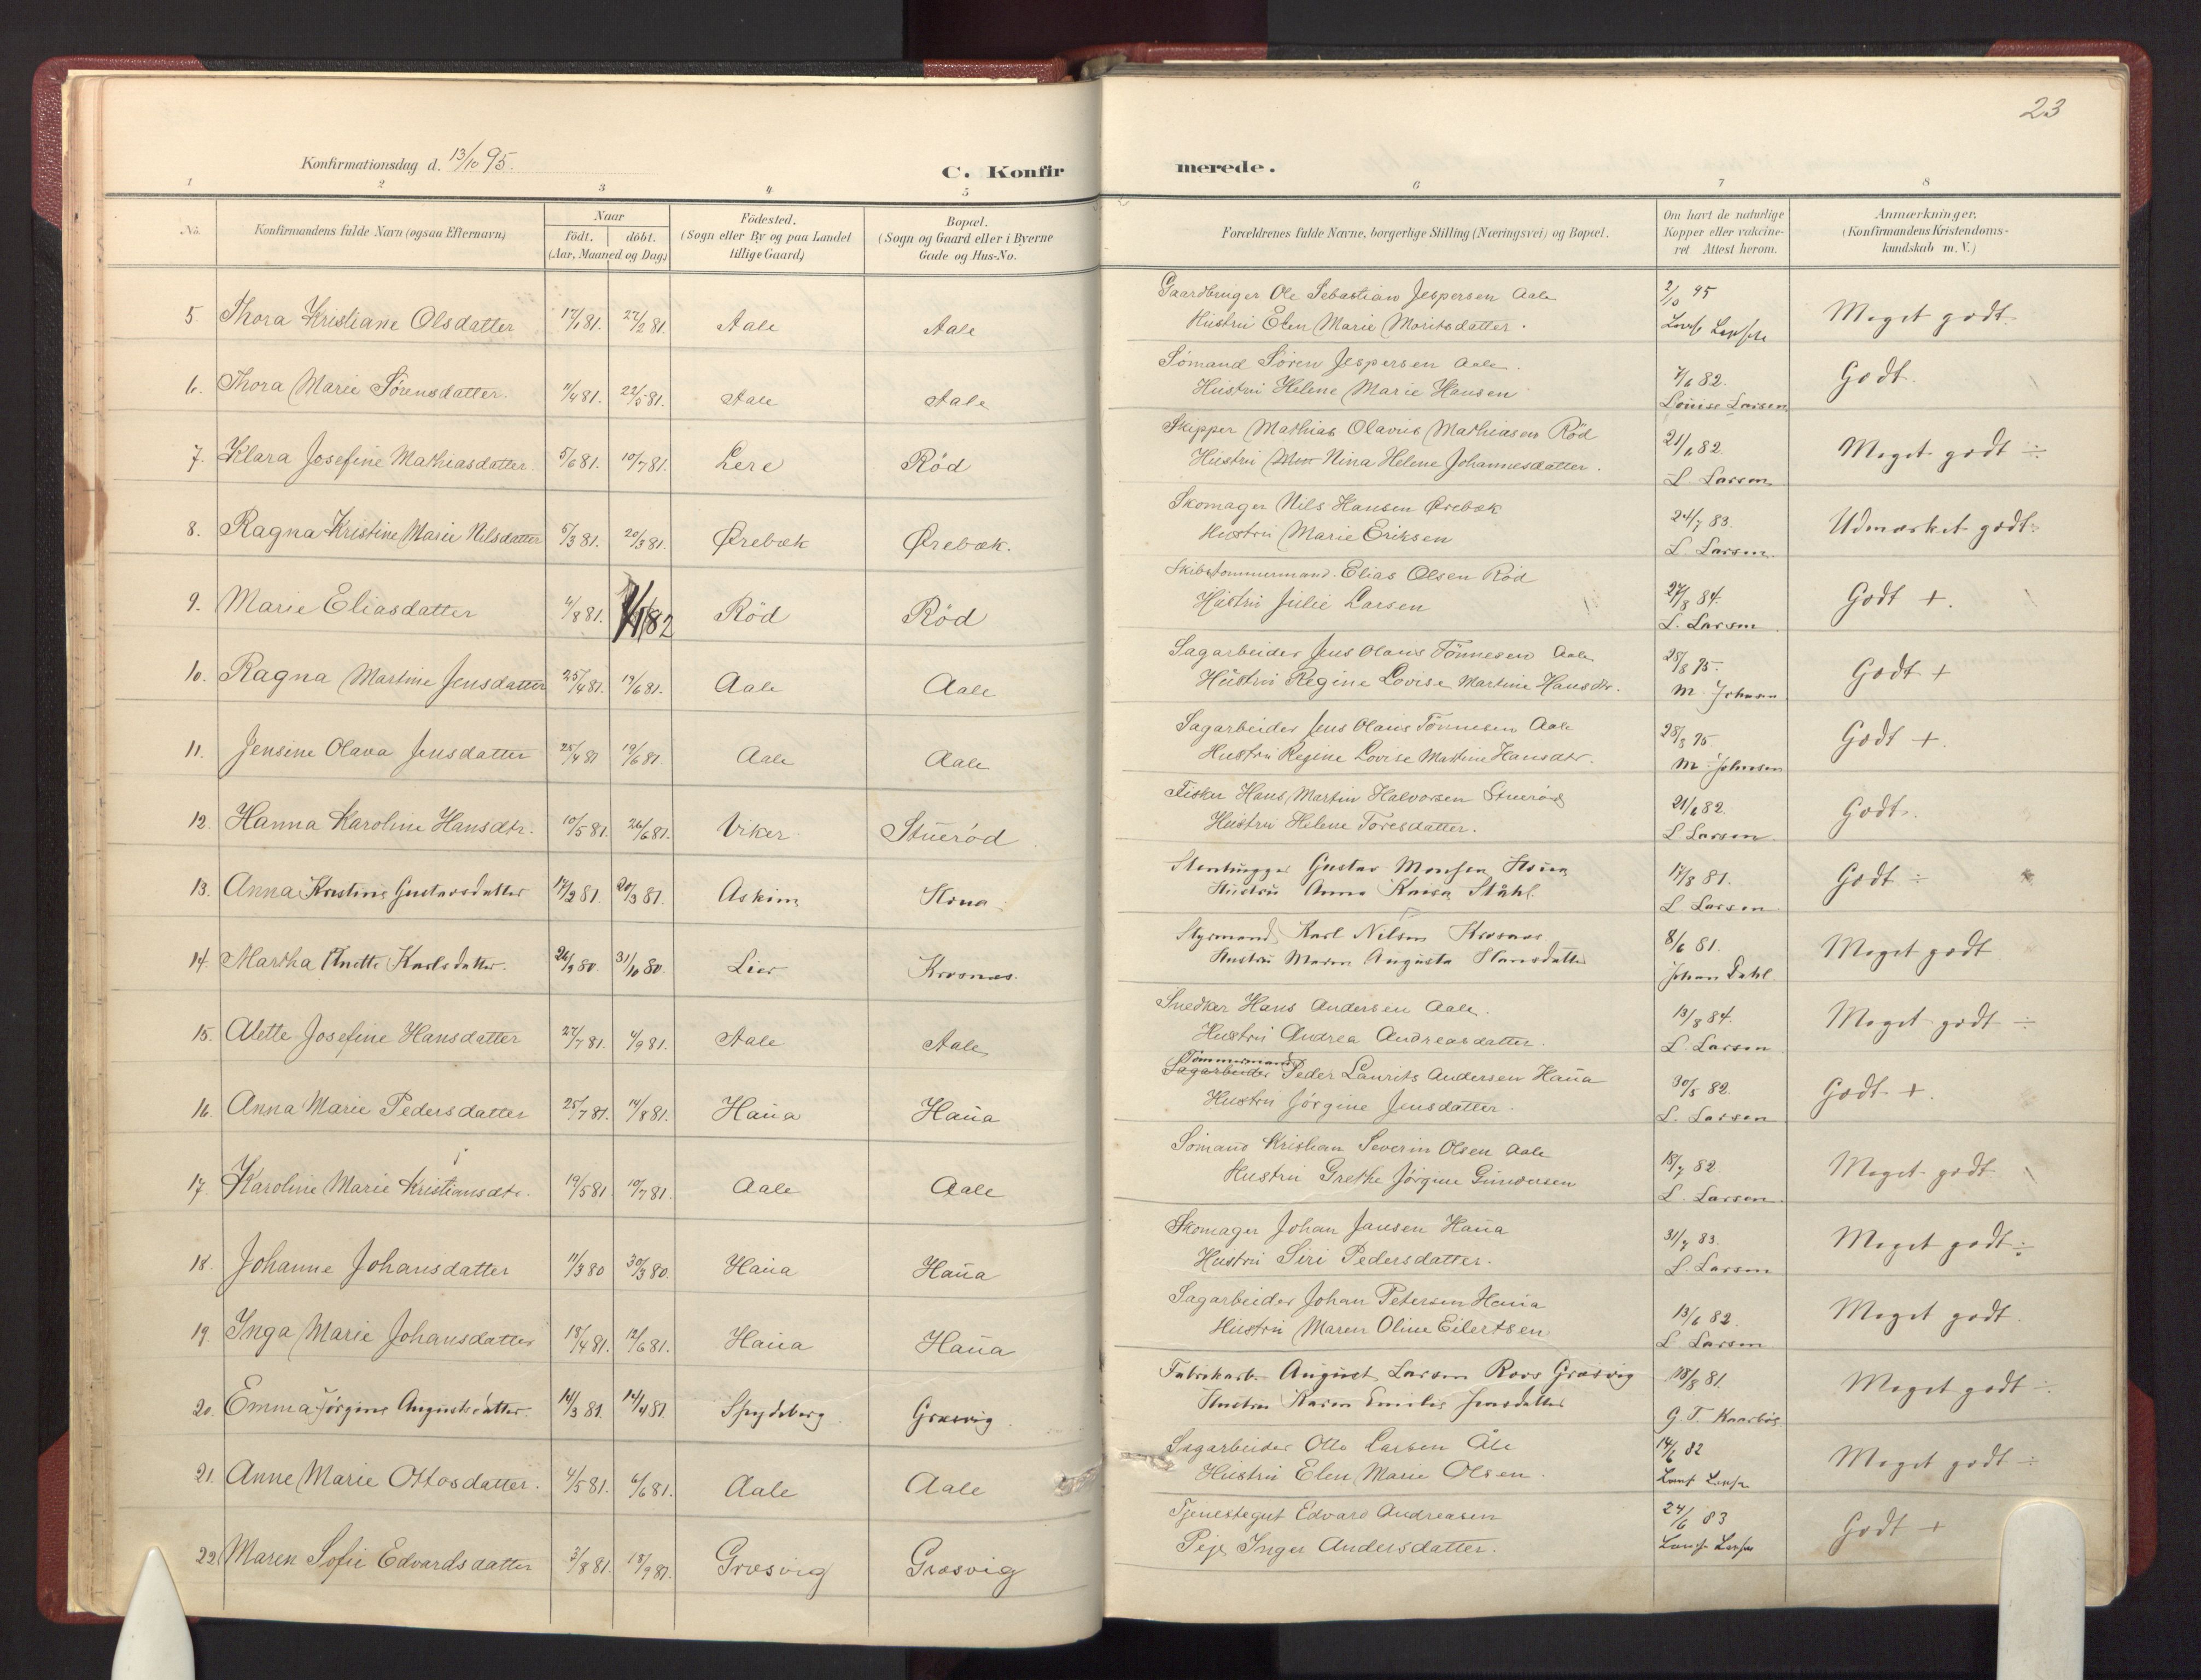 23
Konfirmationsdag d. 13/10 95.
C. Konfirmerede.
1 2 3 4 5 6 7 8
No.
Konfirmandens fulde Navn (ogsaa Efternavn)
Naar
födt. döbt.
(Aar, Maaned og Dag)
Födested.
(Sogn eller By og paa Landet
tillige Gaard)
Bopæl.
(Sogn og Gaard eller i Byerne
Gade og Hus-No.
Forældrenes fulde Navne, borgerlige Stilling (Næringsvei) og Bopæl.
Om havt de naturlige
Kopper eller vakcine-
ret Attest herom.
Anmærkninger.
(Konfirmandens Kristendoms-
kundskab m. V.)
5 Thora Kristiane Olsdatter 17/1 81. 27/2 81. Aale Aale
Gaardbruger Ole Sebastian Jespersen Aale
Hustru Elen Marie Moritsdatter.
2/10 95
Meget godt.
6. Thora Marie Sørensdatter. 11/4 81. 22/5 81. Aale Aale
Sømand Søren Jespersen Aale.
Hustru Helene Marie Hansen
7/6 82.
Louise Larsen
Godt.
7. Klara Josefine Mathiasdatter. 5/6 81. 10/7 81. Lere Rød
Skipper Mathias Olavus Mathiasen Rød
Hustru Nina Helene Johannesdatter.
21/6 82
L. Larsen
Meget godt ÷
8. Ragna Kristine Marie Nilsdatter 5/3 81. 20/3 81. Ørebæk Ørebæk.
Skomager Nils Hansen Ørebæk
Hustru Marie Eriksen
24/7 83.
L. Larsen.
Udmærket godt.
9. Marie Eliasdatter 4/8 81. 1/1 82 Rød Rød
Skibstømmermand Elias Olsen Rød
Hustru Julie Larsen
27/8 84.
L. Larsen
Godt +.
10. Ragna Martine Jensdatter 25/4 81. 19/6 81. Aale Aale
Sagarbeider Jens Olaus Tönnesen Aale
Hustru Regine Lovise Martine Hansdtr.
28/8 95.
M. Johnsen
Godt +
11. Jensine Olava Jensdatter 25/4 81 19/6 81. Aale Aale
Sagarbeider Jens Olaus Tönnesen Aale
Hustru Regine Lovise Martine Hansdtr.
28/8 95.
M. Johnsen
Godt +.
12. Hanna Karoline Hansdtr. 10/5 81. 26/6 81. Viker Stuerød
Fisker Hans Martin Halvorsen Stuerød
Hustru Helene Toresdatter.
21/6 82.
L. Larsen
Godt.
13. Anna Kristine Gustavsdatter 17/2 81. 20/3 81. Askim Houa
Stenhugger Gustav Monsen Houa
Hustru Anna Kaisa Ståhl
17/8 81.
L. Larsen
Godt ÷
14. Martha Anette Karlsdatter. 26/9 80. 31/10 80. Lier Krosnæs.
Styrmand Karl Nilsen Krosnæs
Hustru Maren Augusta Hansdatter
8/6 81.
Johan Dahl
Meget godt
15. Alette Josefine Hansdatter 27/7 81. 4/9 81. Aale Aale
Snedker Hans Andersen Aale.
Hustru Andrea Andreasdatter.
13/8 84.
L. Larsen
Meget godt ÷
16. Anna Marie Pedersdatter 25/7 81. 14/8 81. Haua Haua
Tømmermand
Sagarbeider Peder Laurits Andersen Haua
Hustru Jörgine Jensdatter.
30/5 82.
L. Larsen
Godt +.
17. Karoline Marie Kristiansdtr. 19/5 81. 10/7 81. Aale Aale
Sømand Kristian Severin Olsen Aale
Hustru Grethe Jørgine Gundersen
18/7 82.
L. Larsen
Meget godt
18. Johanne Johansdatter 11/3 80 30/3 80. Haua Haua
Skomager Johan Jansen Haua
Hustru Siri Pedersdatter.
31/7 83.
L. Larsen
Meget godt ÷
19. Inga Marie Johansdatter 18/4 81. 12/6 81. Haua Haua
Sagarbeider Johan Petersen Haua
Hustru Maren Oline Eilertsen
13/6 82.
L. Larsen
Meget godt.
20. Emma Jörgine Augustsdatter 14/3 81. 14/4 81. Spydeberg Græsvig.
Fabrikarb. August Larsen Roos Græsvig
Hustru Karen Emilie Jensdatter
18/8 81.
G. T. Kaarbøe
Meget godt ÷
21. Anne Marie Ottosdatter. 4/5 81. 6/6 81. Aale Aale
Sagarbeider Otto Larsen Åle
Hustru Elen Marie Olsen.
14/6 82
Meget godt ÷
22. Maren Sofie Edvardsdatter 3/8 81. 18/9 81. Græsvig Græsvig
Tjenestegut Edvard Andreasen
Pige Inger Andersdatter.
24/6 83
Godt +